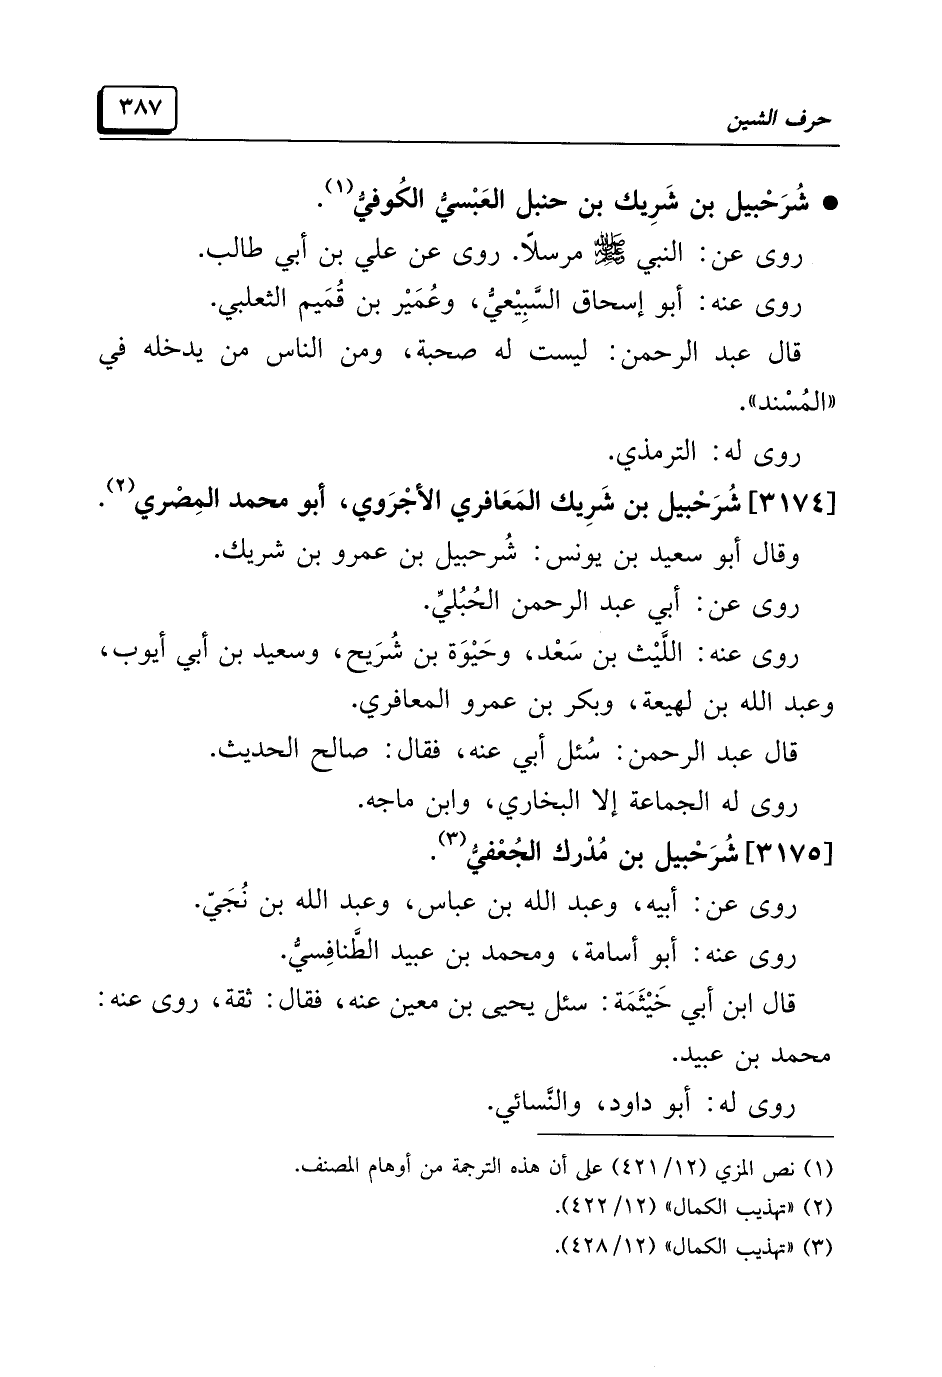 حرف الشين
٣٨٧
● شُرَحْبيل بن شَرِيك بن حنبل العَبْسيُّ الكُوفيُّ(١).
روى عن: النبي ﷺ مرسلًا. روى عن علي بن أبي طالب.
روى عنه: أبو إسحاق السَّبِيْعيُّ، وعُمَيْر بن قُمَيم الثعلبي.
قال عبد الرحمن: ليست له صحبة، ومن الناس من يدخله في
«المُسْند».
روى له: الترمذي.
[٣١٧٤] شُرَحْبيل بن شَرِيك المَعَافري الأجْرَوي، أبو محمد المِصْري(٢).
وقال أبو سعيد بن يونس: شُرحبيل بن عمرو بن شريك.
روى عن: أبي عبد الرحمن الحُبُليِّ.
روى عنه: اللَّيْث بن سَعْد، وحَيْوَة بن شُرَيح، وسعيد بن أبي أيوب،
وعبد الله بن لهيعة، وبكر بن عمرو المعافري.
قال عبد الرحمن: سُئل أبي عنه، فقال: صالح الحديث.
روى له الجماعة إلا البخاري، وابن ماجه.
[٣١٧٥] شُرَحْبيل بن مُدْرك الجُعْفيُّ(٣).
روى عن: أبيه، وعبد الله بن عباس، وعبد الله بن نُجَيّ.
روى عنه: أبو أسامة، ومحمد بن عبيد الطَّنافِسيُّ.
قال ابن أبي خَيْثَمَة: سئل يحيى بن معين عنه، فقال: ثقة، روى عنه:
محمد بن عبيد.
روى له: أبو داود، والنَّسائي.
(١) نص المزي (١٢/ ٤٢١) على أن هذه الترجمة من أوهام المصنف.
(٢) «تهذيب الكمال» (١٢/ ٤٢٢).
(٣) «تهذيب الكمال» (١٢/ ٤٢٨).